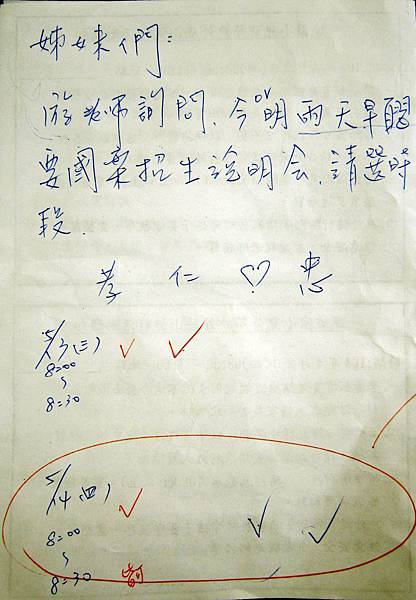 姊妹們：
游老師詢問、今or明兩天早醒
要國樂招生說明会,請選時
段.
孝 仁 ♡ 忠
5/13(三) ✓ ✓
8:00
~
8:30
5/14(四) ✓
8:00 ✓ ✓
~
8:30 皆可